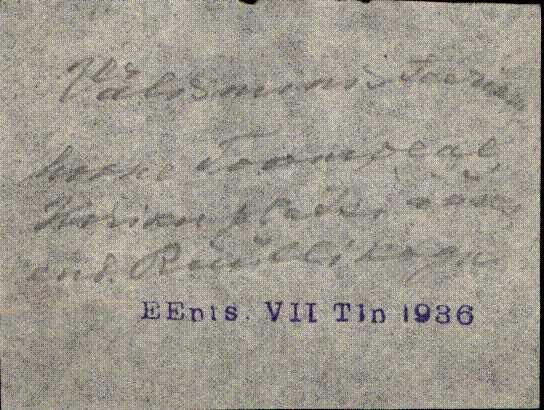 Välisministeerium
hoone Toompeal,
Kiriku platsi ääres,
end. Rüütlikogu
EEnts. VII Tln 1936